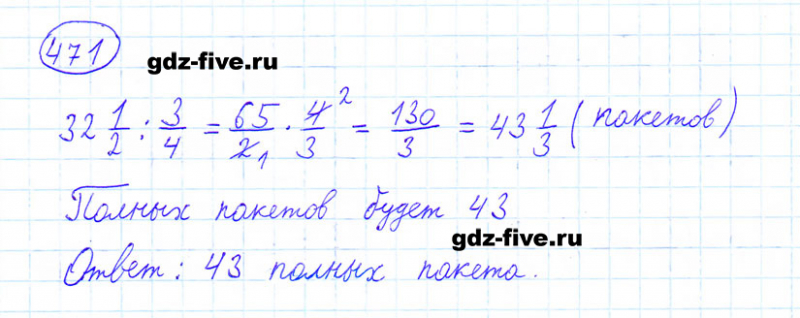 471
gdz-five.ru
32 1/2 : 3/4 = 65/2 1 · 4/3 2 = 130/3 = 43 1/3 (пакетов)
Полных пакетов будет 43
gdz-five.ru
Ответ: 43 полных пакета.